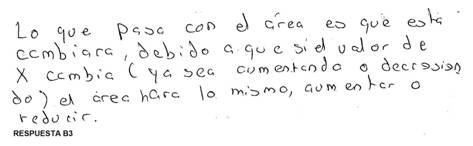 Lo que pasa con el área es que esta
cambiara, debido a que si el valor de
X cambia (ya sea aumentando o decresien
do) el área hara lo mismo, aumentar o
reducir.
RESPUESTA B3